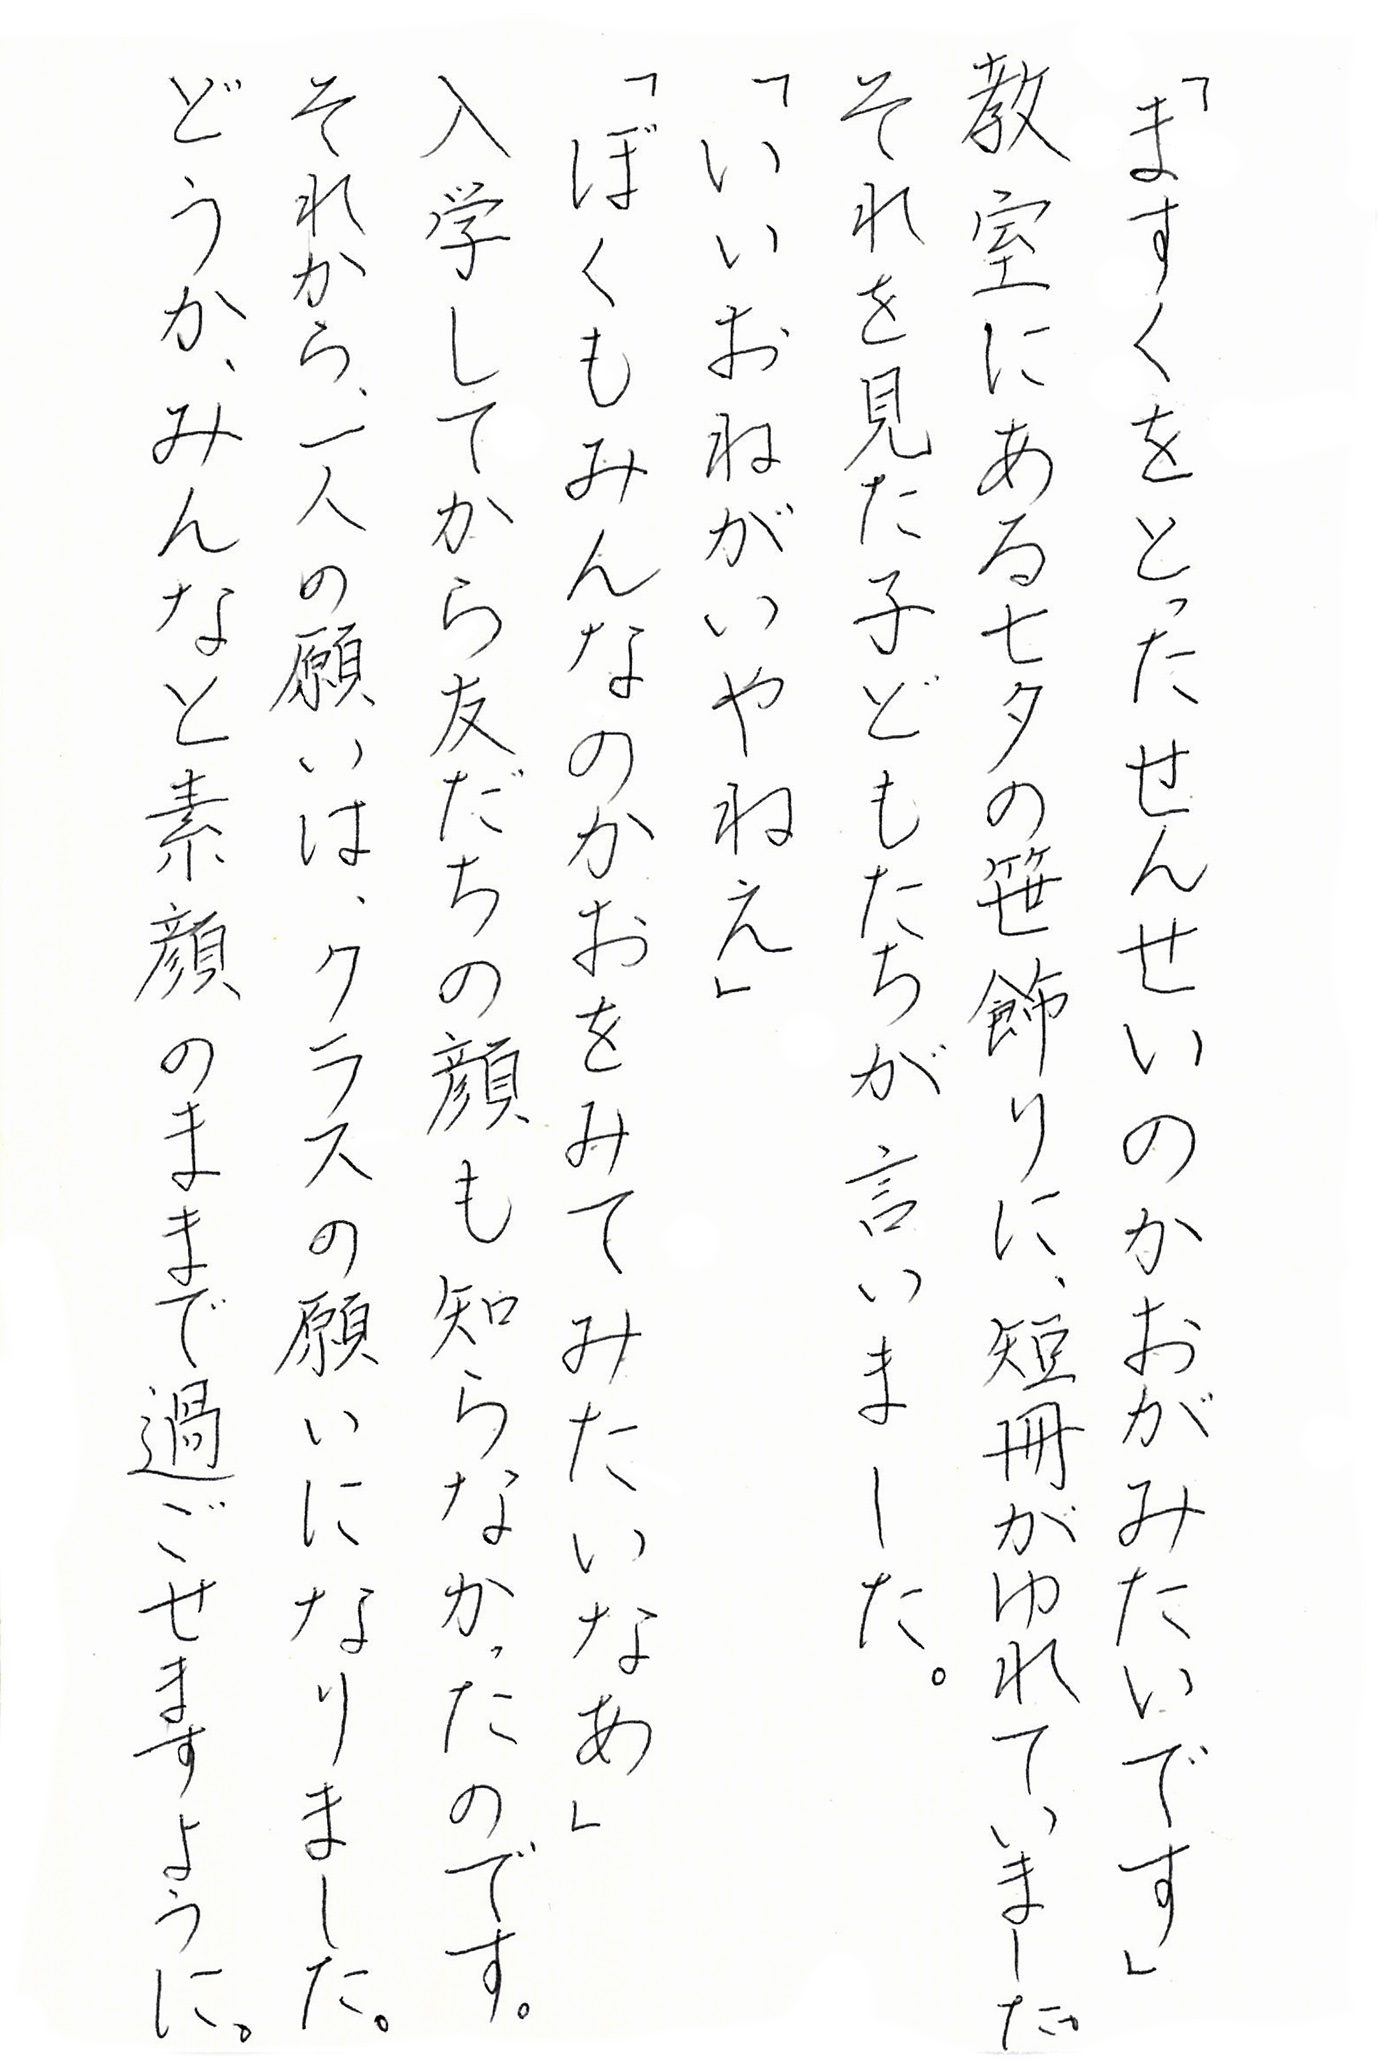 「ますくをとったせんせいのかおがみたいです」
教室にある七夕の笹飾りに、短冊がゆれていました。
それを見た子どもたちが言いました。
「いいおねがいやねえ」
「ぼくもみんなのかおをみてみたいなあ」
入学してから友だちの顔も知らなかったのです。
それから、一人の願いは、クラスの願いになりました。
どうか、みんなと素顔のままで過ごせますように。